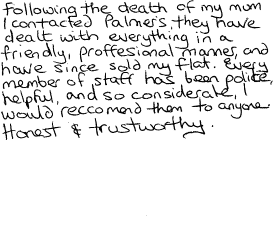 Following the death of my mum
I contacted Palmers, they have
dealt with everything in a
friendly, proffesional manner, and
have since sold my flat. Every
member of staff has been polite,
helpful, and so considerate, I
would reccomend them to anyone.
Honest & trustworthy.